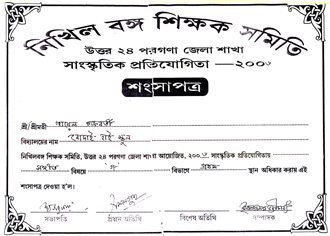 নিখিল বঙ্গ শিক্ষক সমিতি
উত্তর ২৪ পরগণা জেলা শাখা
সাংস্কৃতিক প্রতিযোগিতা —২০০
শংসাপত্র
শ্রী/শ্রীমতী
বিদ্যালয়ের নাম
নিখিলবঙ্গ শিক্ষক সমিতি, উত্তর ২৪ পরগণা জেলা শাখা আয়োজিত, ২০০ সাংস্কৃতিক প্রতিযোগিতায়
বিষয়ে "গ" বিভাগে প্রথম স্থান অধিকার করায় এই
শংসাপত্র দেওয়া হ'ল।
সভাপতি প্রধান অতিথি বিশেষ অতিথি সম্পাদক